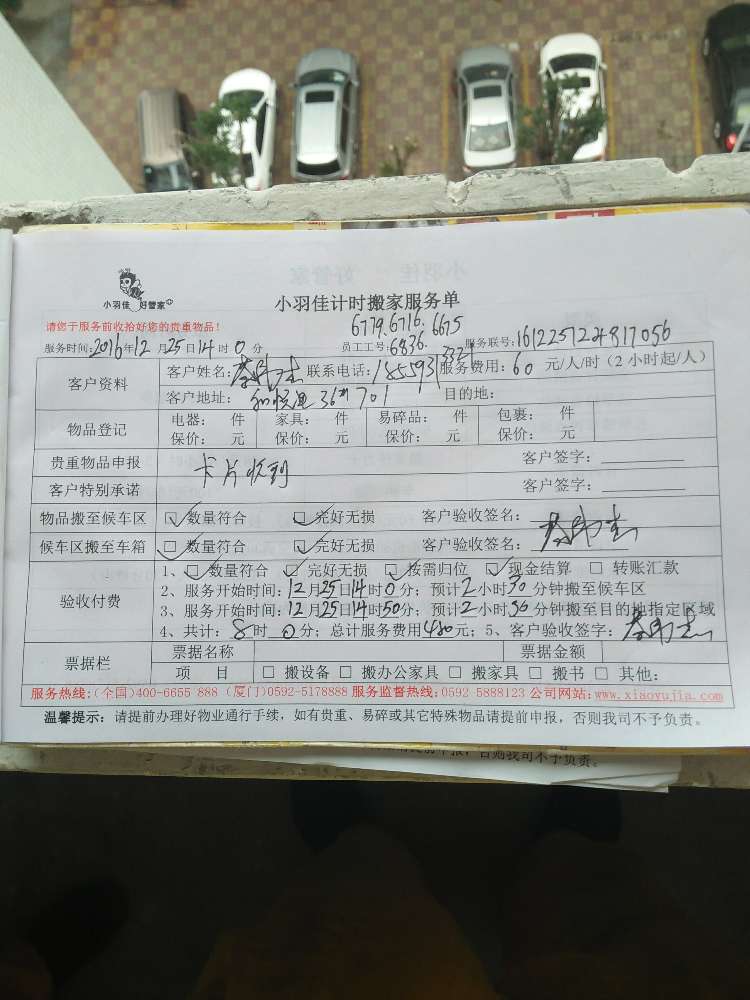 小羽佳 好管家
小羽佳计时搬家服务单
请您于服务前收拾好您的贵重物品！
6779.6716.6675
服务时间:2016年12月25日14时0分 员工工号:6836. 服务联号:161225122817056
客户资料 客户姓名: 联系电话: 服务费用:60元/人/时（2小时起/人）
客户地址: 701 目的地:
物品登记 电器: 件 家具: 件 易碎品: 件 包裹: 件
保价: 元 保价: 元 保价: 元 保价: 元
贵重物品申报 卡片收到 客户签字:
客户特别承诺 客户签字:
物品搬至候车区 数量符合 完好无损 客户验收签名:
候车区搬至车箱 数量符合 完好无损 客户验收签名:
验收付费 1、 数量符合 完好无损 按需归位 现金结算 转账汇款
2、服务开始时间:12月25日14时0分；预计2小时30分钟搬至候车区
3、服务开始时间:12月25日14时50分；预计2小时30分钟搬至目的地指定区域
4、共计:8时0分；总计服务费用480元；5、客户验收签字:
票据栏 票据名称 票据金额
项 目 搬设备 搬办公家具 搬家具 搬书 其他:
服务热线:(全国)400-6655 888 (厦门)0592-5178888 服务监督热线:0592-5888123 公司网站:www.xiaoyujia.com
温馨提示：请提前办理好物业通行手续，如有贵重、易碎或其它特殊物品请提前申报，否则我司不予负责。